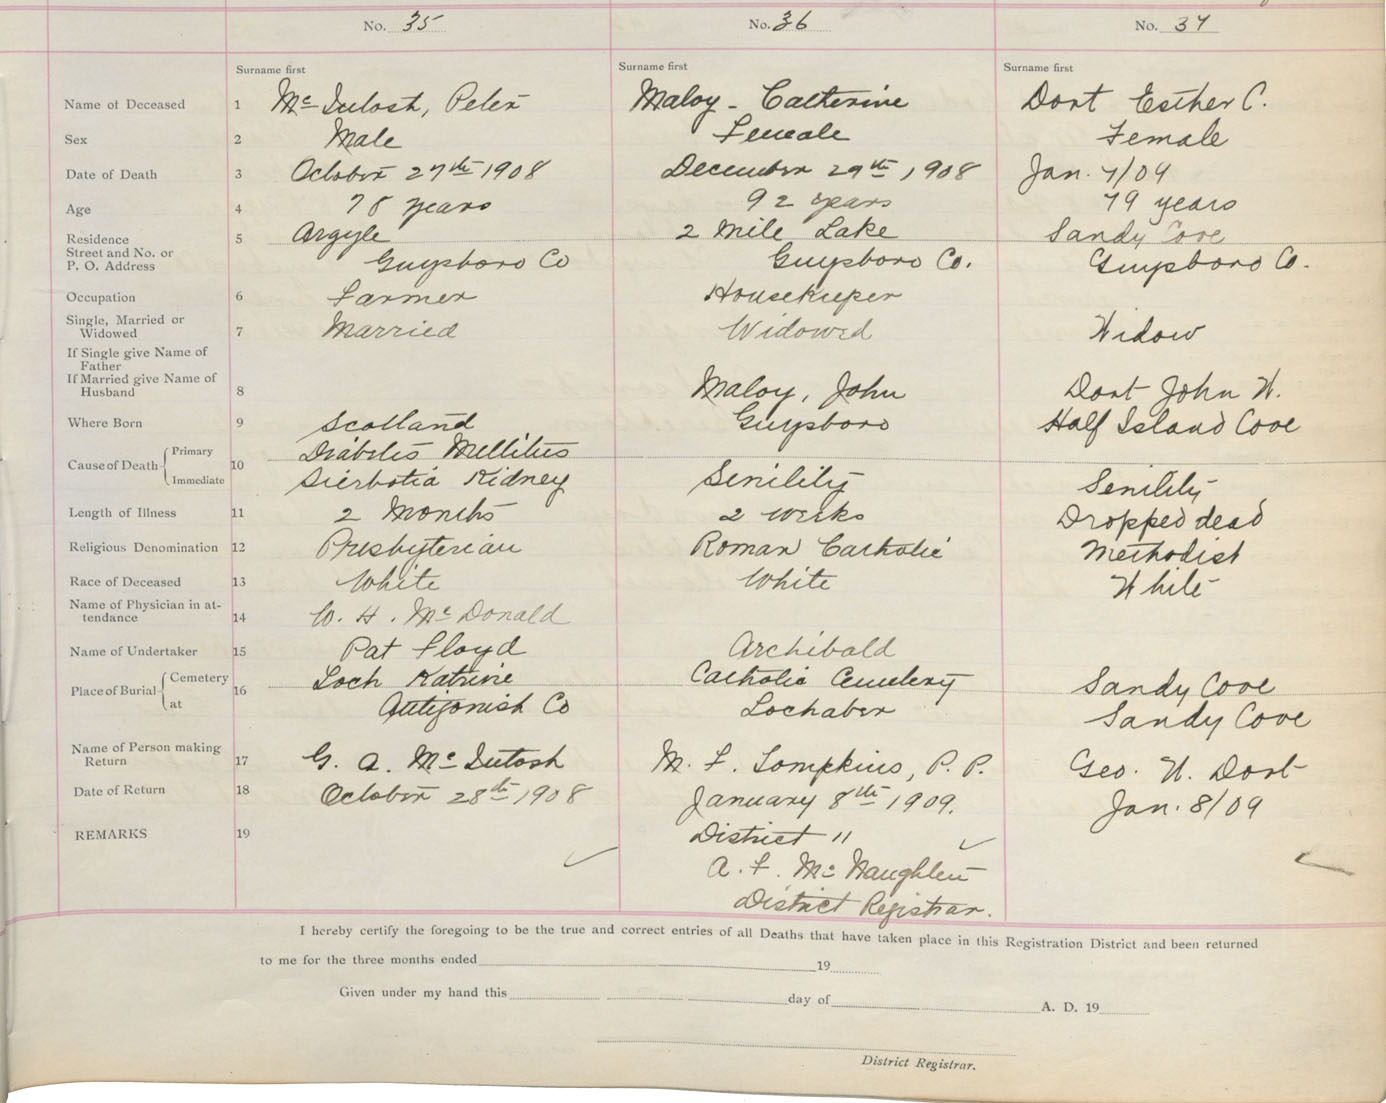 No. 35 No. 36 No. 37
Surname first Surname first Surname first
Name of Deceased 1 Mc Intosh, Peter Maloy - Catherine Dort Esther C.
Sex 2 Male Female Female
Date of Death 3 October 27th 1908 December 29th, 1908 Jan. 7/09
Age 4 78 years 92 years 79 years
Residence 5 Argyle 2 Mile Lake Sandy Cove
Street and No. or
P. O. Address Guysboro Co Guysboro Co. Guysboro Co.
Occupation 6 Farmer Housekeeper
Single, Married or
Widowed 7 Married Widowed Widow
If Single give Name of
Father
If Married give Name of
Husband 8 Maloy, John Dort John W.
Where Born 9 Scotland Guysboro Half Island Cove
Cause of Death Primary Diabetis Mellitus
10
Immediate Kidney Senility Senility
Length of Illness 11 2 Months 2 weeks Dropped dead
Religious Denomination 12 Presbyterian Roman Catholic Methodist
Race of Deceased 13 White White White
Name of Physician in at-
tendance 14 W. H. Mc Donald
Name of Undertaker 15 Pat Floyd Archibald
Place of Burial Cemetery 16 Loch Katrine Catholic Cemetery Sandy Cove
at Antigonish Co Lochaber Sandy Cove
Name of Person making
Return 17 G. A. Mc Intosh M. F. Tompkins, P. P. Geo. W. Dort
Date of Return 18 October 28th 1908 January 8th 1909. Jan. 8/09
REMARKS 19 District 11
A. F. Mc Naughten
District Registrar.
I hereby certify the foregoing to be the true and correct entries of all Deaths that have taken place in this Registration District and been returned
to me for the three months ended 19
Given under my hand this day of A. D. 19
District Registrar.